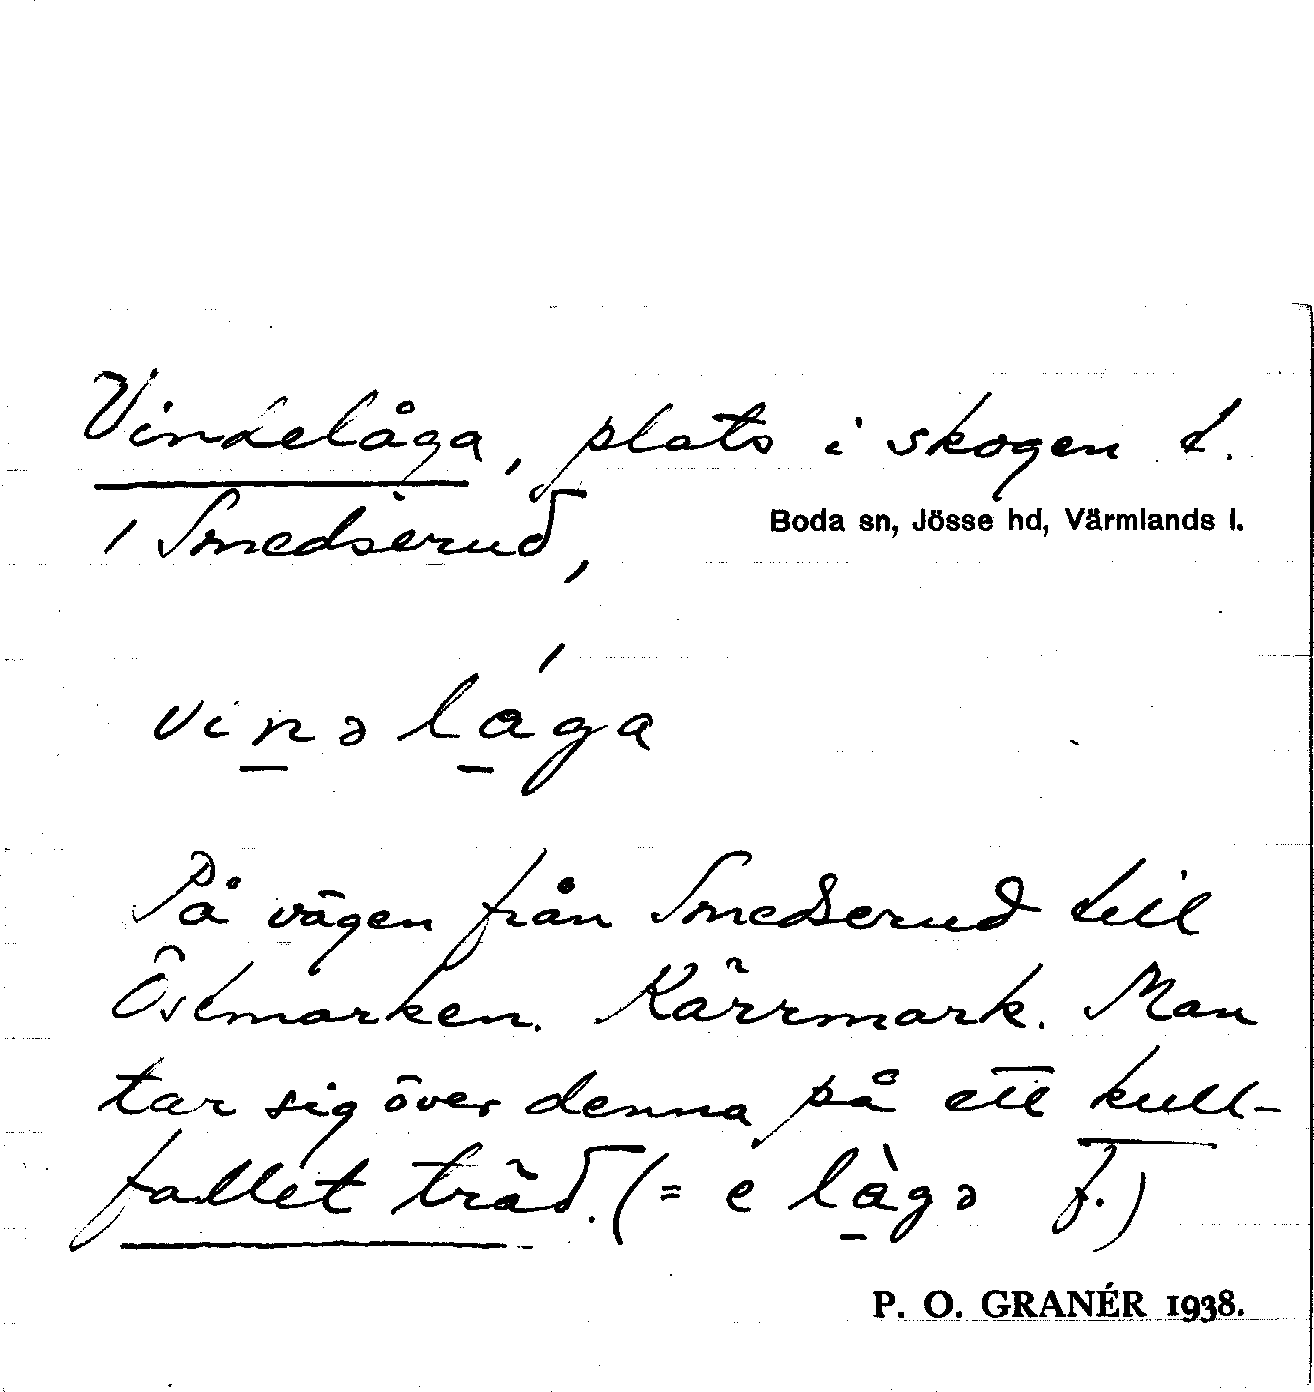 Vindelåga, plats i skogen t.
i Smedserud,
Boda sn, Jösse hd, Värmlands l.
vinəlága
På vägen från Smedserud till
Östmarken. Kärrmark. Man
tar sig över denna på ett kull-
fallet träd. (= e làgə f.)
P. O. GRANÉR 1938.